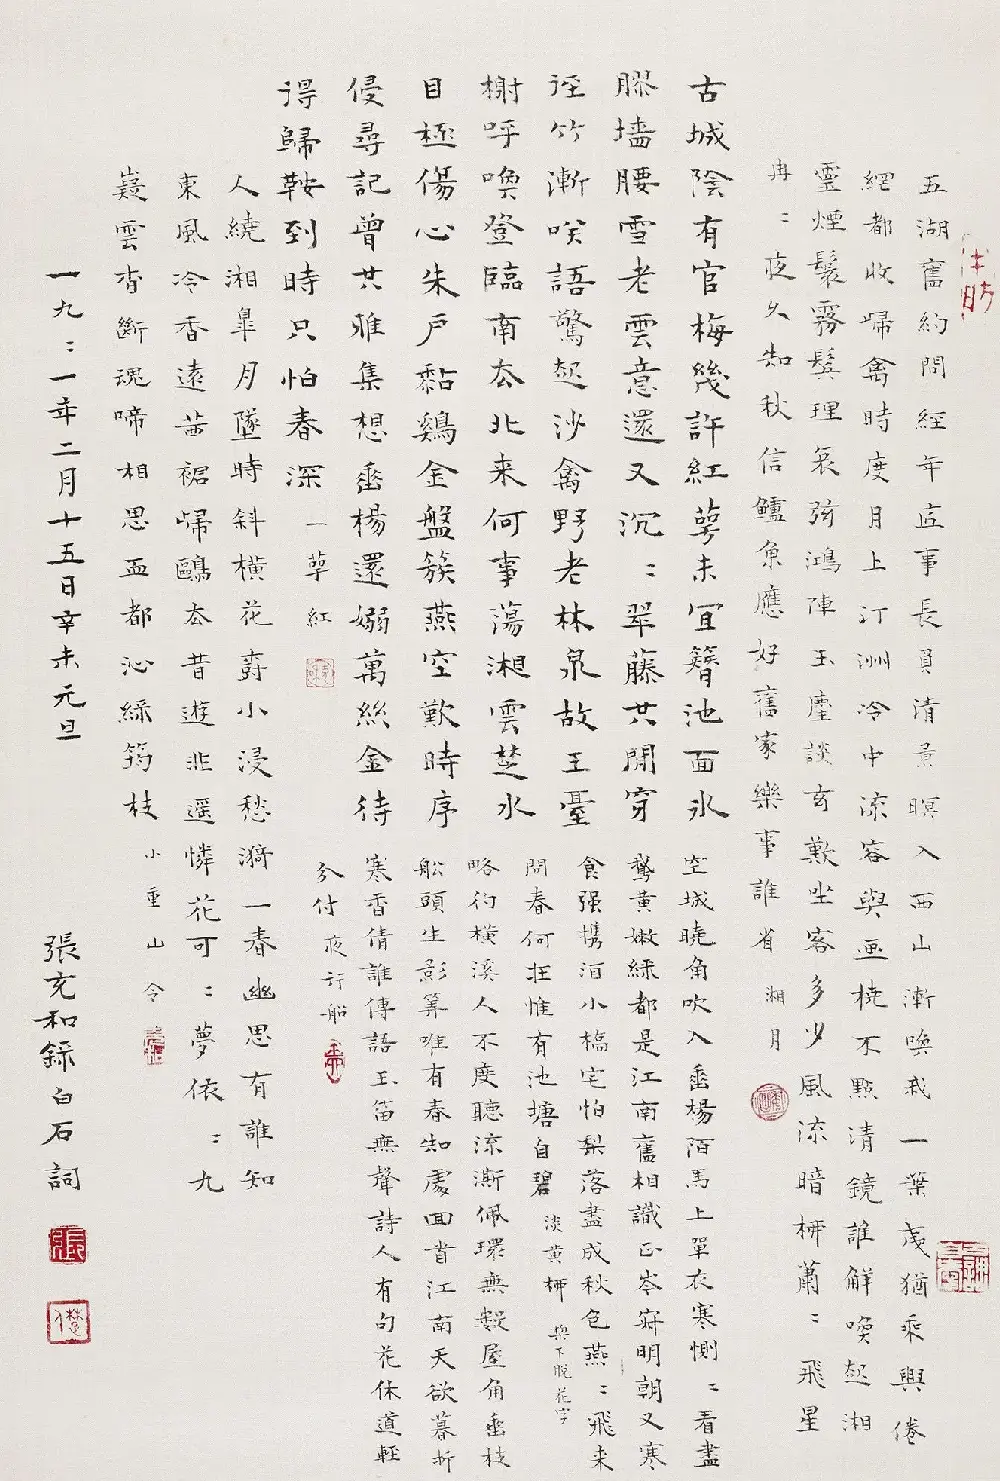 五湖舊約問經年底事長負清景暝入西山漸喚我一葉夷猶乘興倦
網都收歸禽時度月上汀洲冷中流容與画橈不點清鏡誰解喚起湘
靈煙鬟霧鬢理哀弦鴻陣玉麈談玄歎坐客多少風流暗柳蕭〻飛星
冉〻夜久知秋信鱸魚應好舊家樂事誰省 湘月
古城陰有官梅幾許紅萼未宜簪池面冰
膠墻腰雪老雲意還又沉〻翠藤共閒穿
徑竹漸笑語驚起沙禽野老林泉故王臺
榭呼喚登臨南去北来何事蕩湘雲楚水
目極傷心朱戶黏鷄金盤簇燕空歎時序
侵尋記曾共雅集想垂楊還嫋萬絲金待
得歸鞍到時只怕春深 一萼紅
空城曉角吹入垂楊陌馬上單衣寒惻〻看盡
鵞黃嫩綠都是江南舊相識正岑寂明朝又寒
食强攜酒小橋宅怕梨落盡成秋色燕〻飛来
問春何在惟有池塘自碧 淡黃柳 下脫花字
略彴橫溪人不度聽流澌佩環無數屋角垂枝
船頭生影算唯有春知處回首江南天欲暮折
寒香倩誰傳語玉笛無聲詩人有句花休道輕
分付 夜行船
人繞湘臯月墜時斜橫花樹小浸愁漪一春幽思有誰知
東風冷香遠茜裙歸鷗去昔遊非遥憐花可〻夢依〻九
嶷雲杳斷魂啼相思血都沁綠筠枝 小重山令
一九〻一年二月十五日辛未元旦
張充和錄白石詞
張